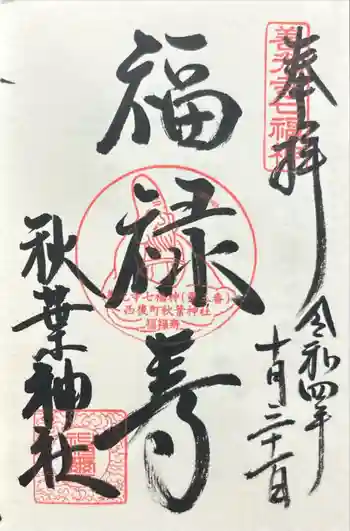 奉拝
善光寺七福神
令和四年
十月三十一日
福禄寿
西後町秋葉神社
福禄寿
秋葉神社